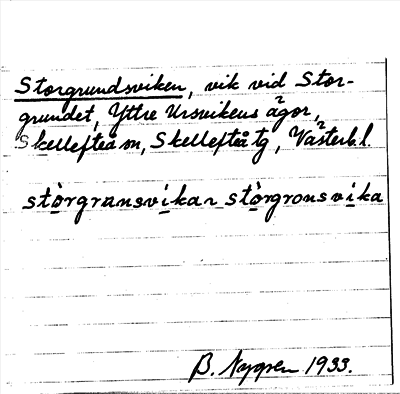 Storgrundsviken, vik vid Stor-
grundet, Yttre Ursvikens ägor,
Skellefteå sn, Skellefteå tg, Västerb. l.
stòrgransvikan stòrgronsvika
B. Nygren 1933.